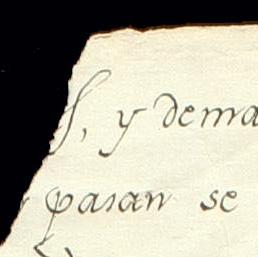 s, y dema
pasan se